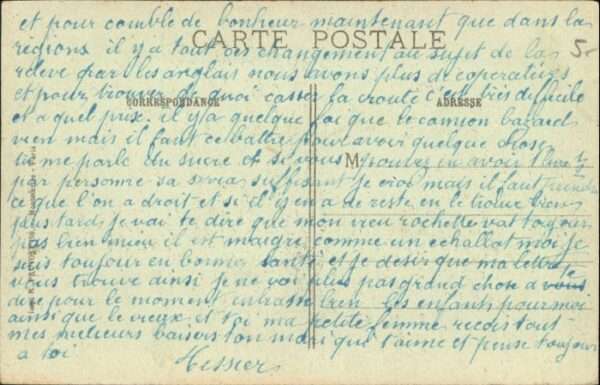 et pour comble de bonheur maintenant que dans la
région il y a tout ces changement au sujet de la
CARTE POSTALE
releve par les anglais nous avons plus de coperatives
et pour trouver de quoi casser la croute c'est très dificile
CORRESPONDANCE
ADRESSE
et a quel prix. il y a quelque foi que le camion bazard
vien mais il faut ce battre pour avoir quelque chose
tu me parle du sucre et si vous pouvez en avoir
M
par personne sa sera suffisant je croi mais il faut prendre
ce que l'on a droit et si il y en a de reste on le trouve bien
plus tard je vai te dire que mon vieu rochette vat toujour
pas bien mieu il est maigre comme un echallat moi je
suis toujour en bonne santé et je desir que ma lettre
vous trouve ainsi je ne voi plus pas grand chose a te
dire pour le moment embrasse bien les enfants pour moi
ainsi que le vieux et toi ma petite femme recois tout
mes meilleurs baisers ton mari qui t'aime et pense toujour
a toi
5